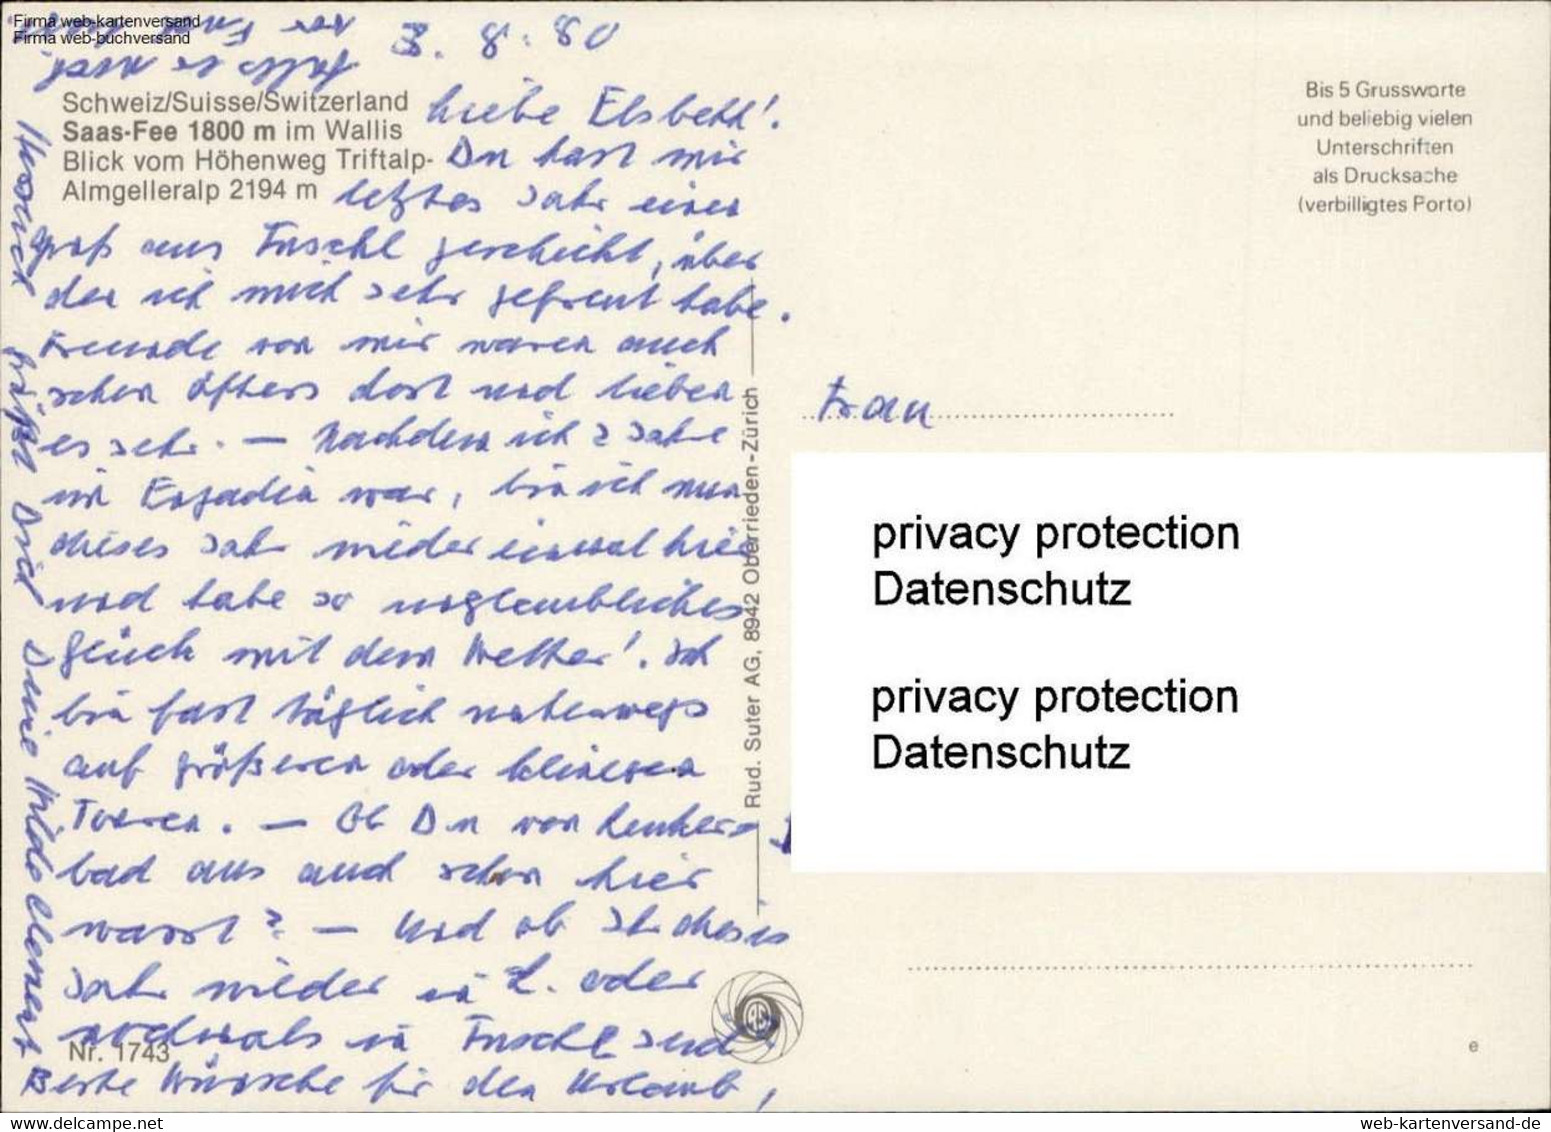 Firma web-kartenversand
Firma web-buchversand
3. 8. 80
Schweiz/Suisse/Switzerland
Saas-Fee 1800 m im Wallis
Blick vom Höhenweg Triftalp-
Almgelleralp 2194 m
Liebe Elsbeth!
Du hast mir
letztes Jahr einen
Gruß aus Fuschl geschickt, über
den ich mich sehr gefreut habe.
Freunde von mir waren auch
schon öfters dort und lieben
es sehr. – Nachdem ich 2 Jahre
im Engadin war, bin ich nun
dieses Jahr wieder einmal hier
und habe so unglaubliches
Glück mit dem Wetter! Ich
bin fast täglich unterwegs
auf größeren oder kleineren
Touren. – Ob Du von Leuker-
bad aus auch schon hier
warst? – Und ob Ihr dieses
Jahr wieder in L. oder
nochmals in Fuschl seid
Beste Wünsche für den Urlaub,
falls er noch
vor
Herzlich grüßt Dich Deine Hilde Clemens
Nr. 1743
Rud. Suter AG, 8942 Oberrieden-Zürich
Bis 5 Grussworte
und beliebig vielen
Unterschriften
als Drucksache
(verbilligtes Porto)
Frau
privacy protection
Datenschutz
privacy protection
Datenschutz
e
www.delcampe.net
web-kartenversand-de